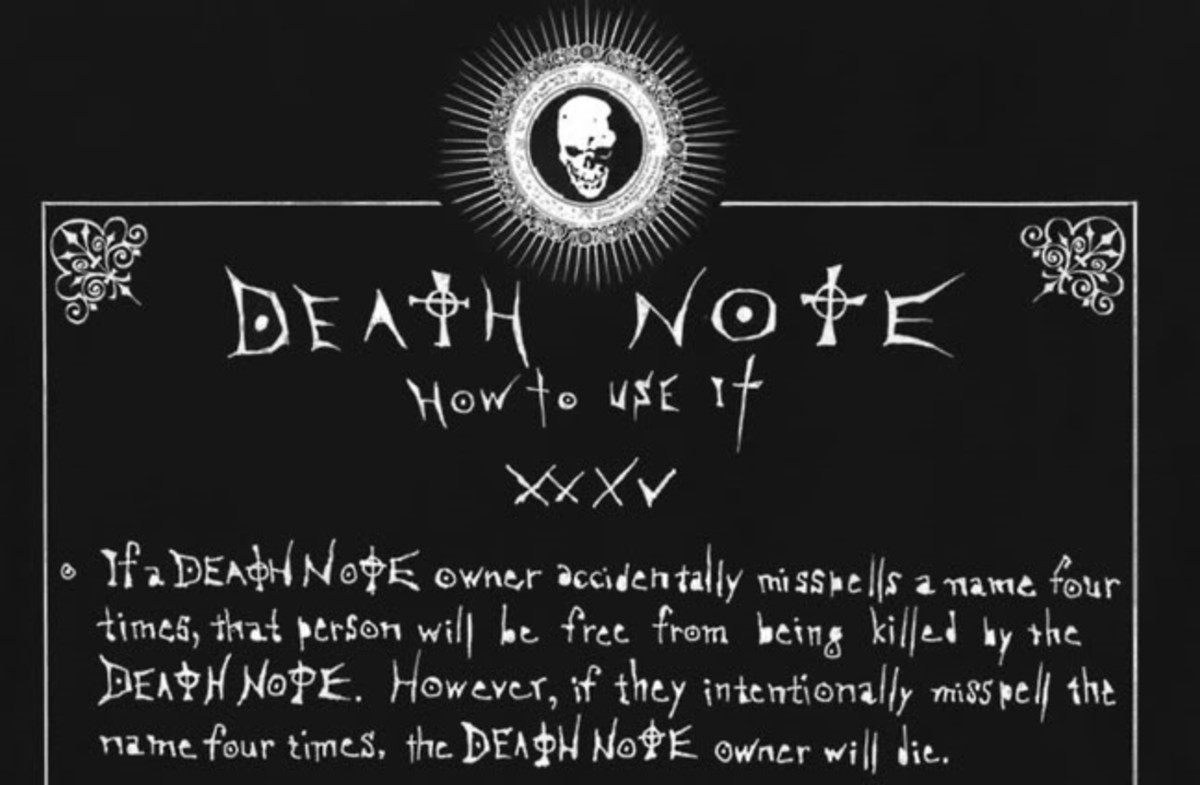 DEATH NOTE
HOW to USE It
XXXV
If a DEATH NOTE owner accidentally misspells a name four
times, that person will be free from being killed by the
DEATH NOTE. However, if they intentionally misspell the
name four times, the DEATH NOTE owner will die.